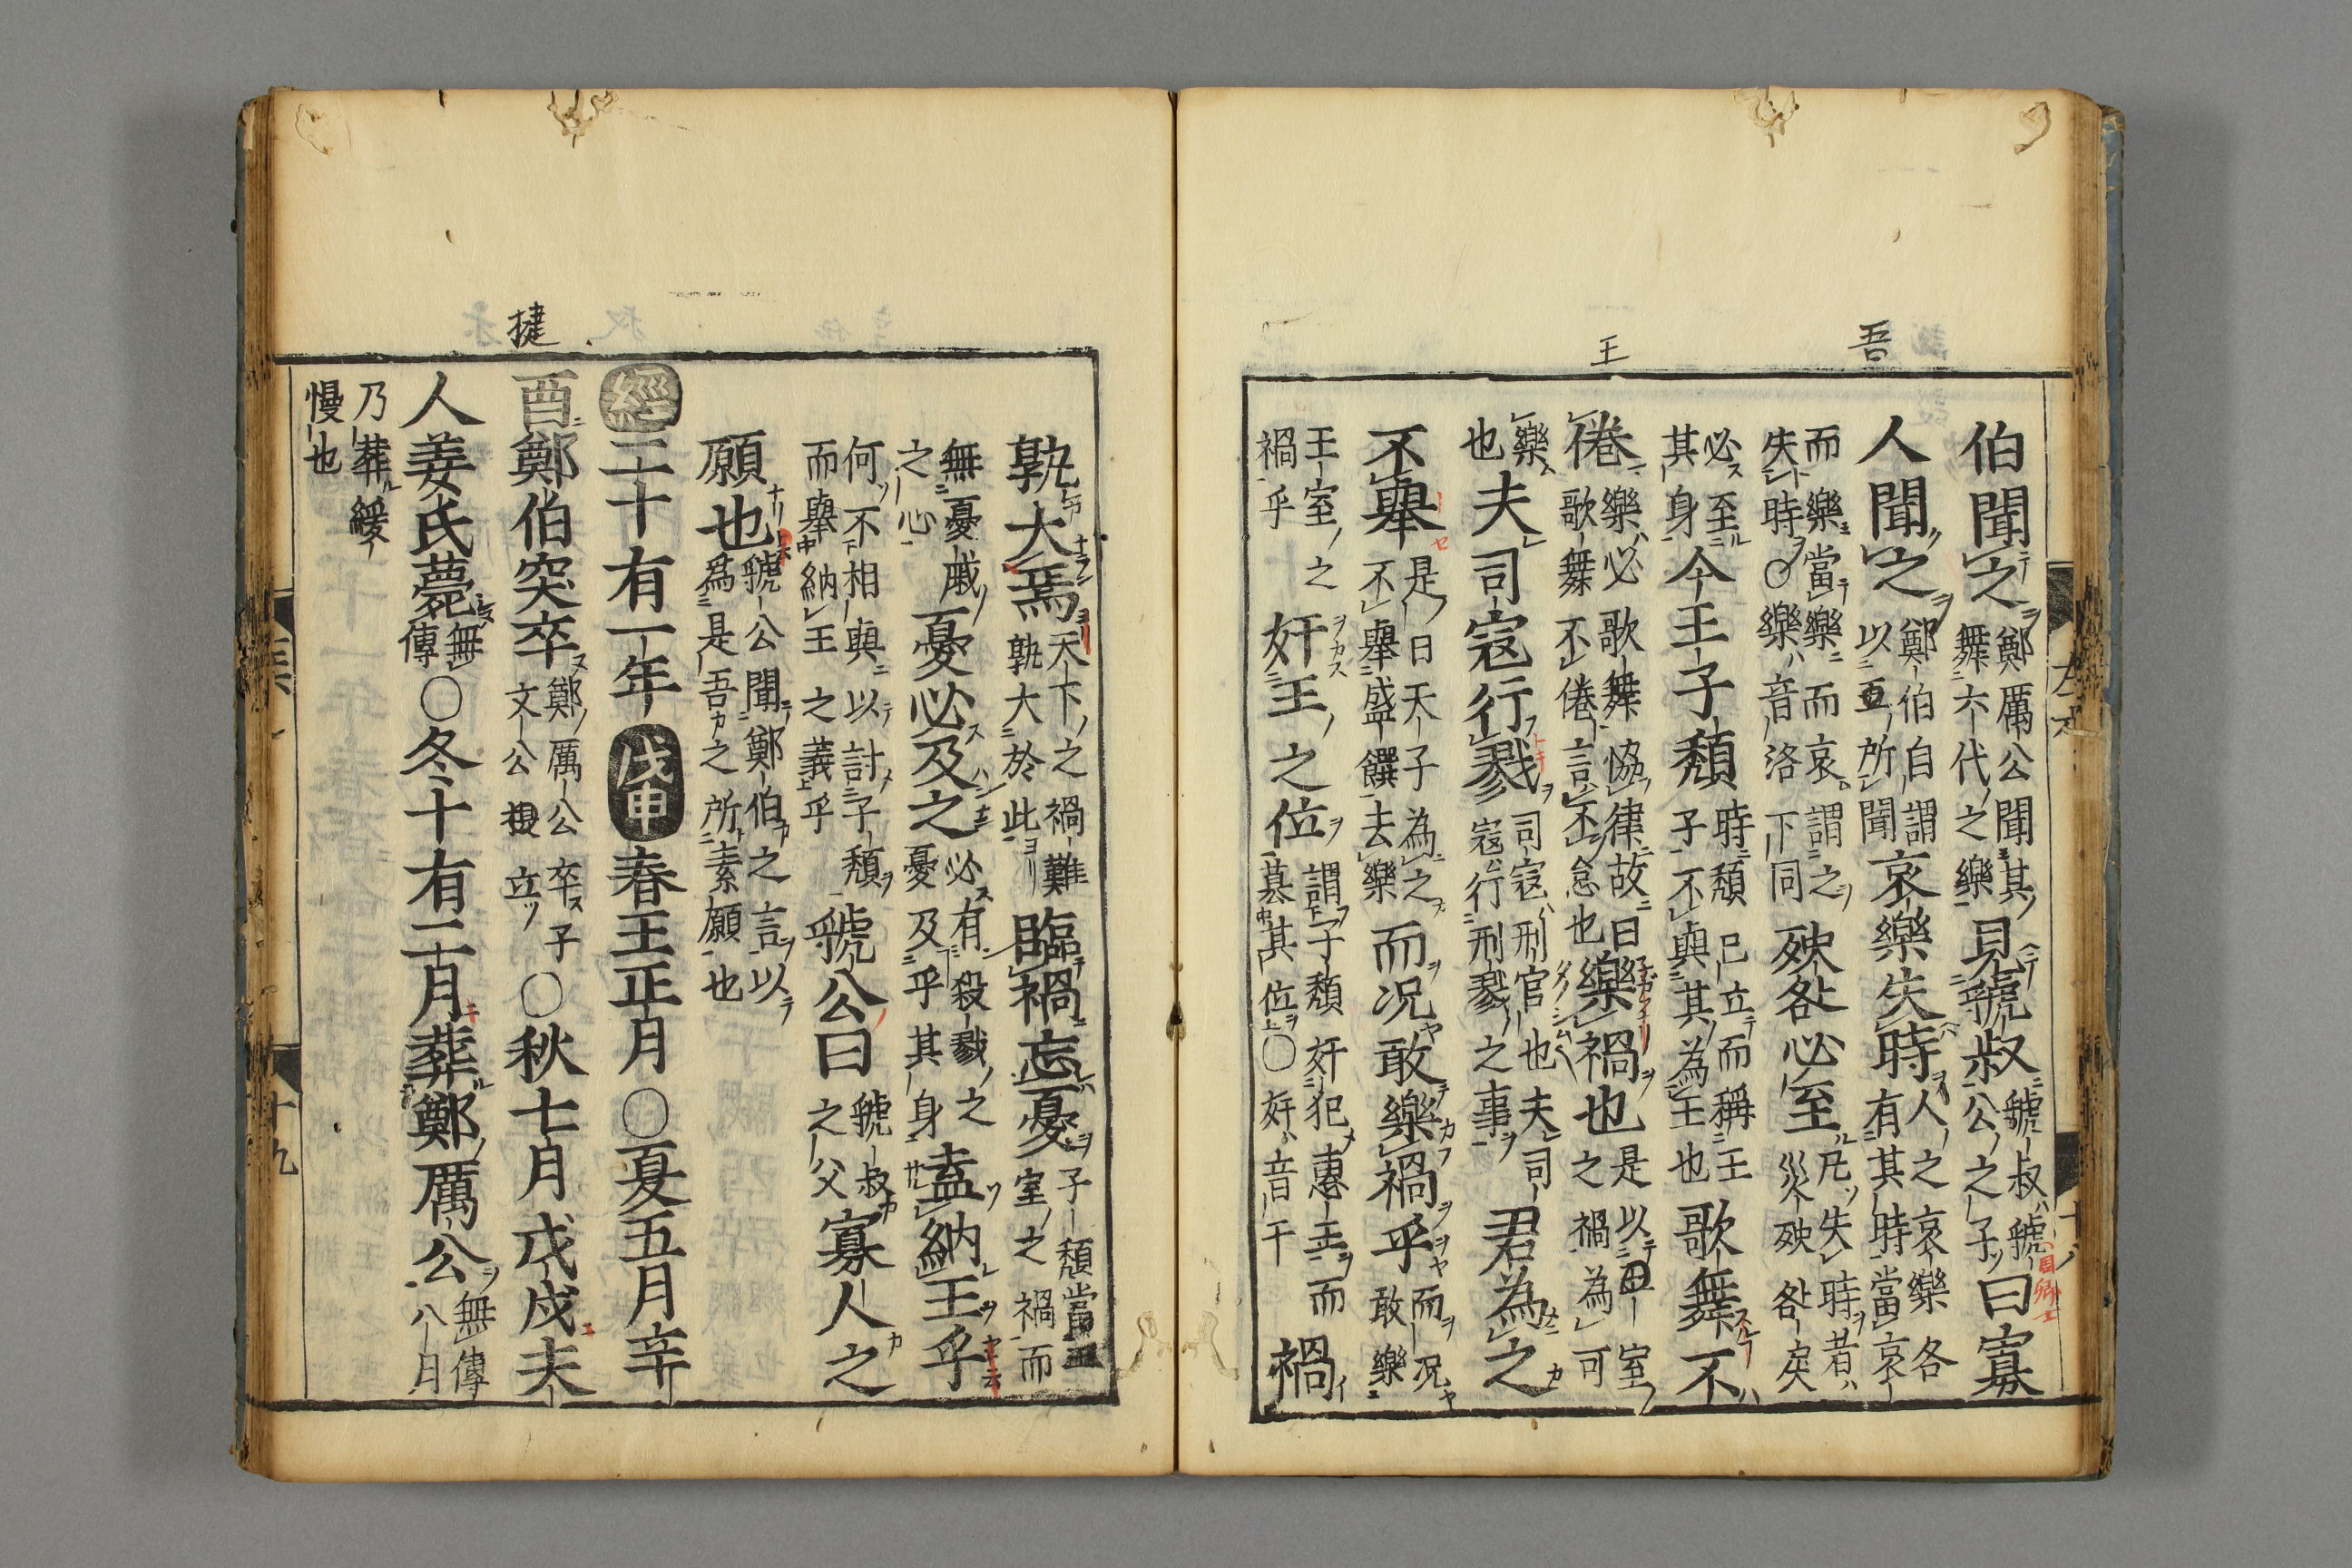 吾
王
伯聞之鄭厲公聞其舞六代之樂見虢叔虢叔虢公之子曰寡
人聞之鄭伯自謂以所聞哀樂失時人之哀樂各有其時當哀
而樂當樂而哀謂之失時○樂音洛下同殃咎必至凡失時者災殃咎戾
必至其身今王子頽時頽已立而稱王子不與其為王也歌舞不
倦樂必歌舞恊律故曰歌舞不倦言不怠也樂禍也是以王室之禍為可
樂也夫司寇行戮司寇刑官也夫司寇行刑戮之事君為之
不舉是日天子為之不舉盛饌去樂而况敢樂禍乎而况敢樂
王室之禍乎奸王之位謂子頽奸犯惠王而其位○奸音干禍
捷
孰大焉天下之禍難孰大於此臨禍忘憂子頽當王室之禍而
無憂戚之心憂必及之必有殺戮之憂及乎其身盍納王乎
何不相與以討子頽而舉納王之義乎虢公曰虢叔之父寡人之
願也虢公聞鄭伯之言以爲是吾之所素願也
經二十有一年戊申春王正月○夏五月辛
酉鄭伯突卒鄭厲公卒子文公立○秋七月戊戌夫
人姜氏薨無傳○冬十有二月葬鄭厲公無傳八月
乃葬緩慢也
十九